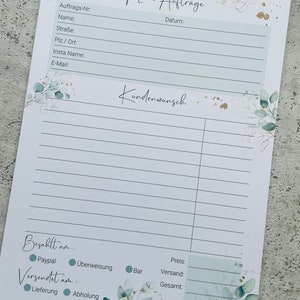 Aufträge
Auftrags-Nr:
Name: Datum:
Straße:
Plz / Ort:
Insta Name:
E-Mail:
Kundenwunsch
Bezahlt am:
Paypal Überweisung Bar
Preis:
Versand:
Gesamt:
Versendet am:
Lieferung Abholung